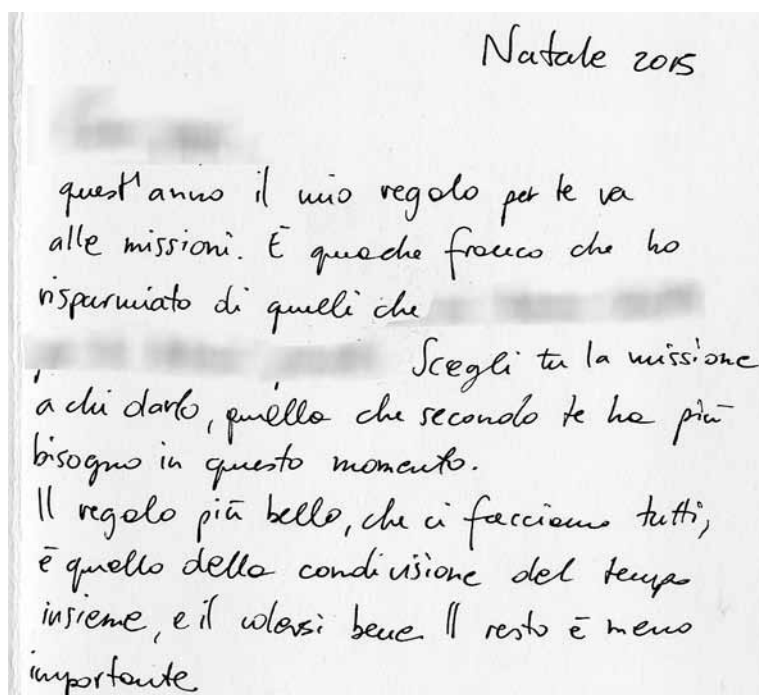 Natale 2015
quest'anno il mio regalo per te va
alle missioni. È qualche franco che ho
risparmiato di quelli che
Scegli tu la missione
a chi darlo, quella che secondo te ha più
bisogno in questo momento.
Il regalo più bello, che ci facciamo tutti,
è quello della condivisione del tempo
insieme, e il volersi bene. Il resto è meno
importante